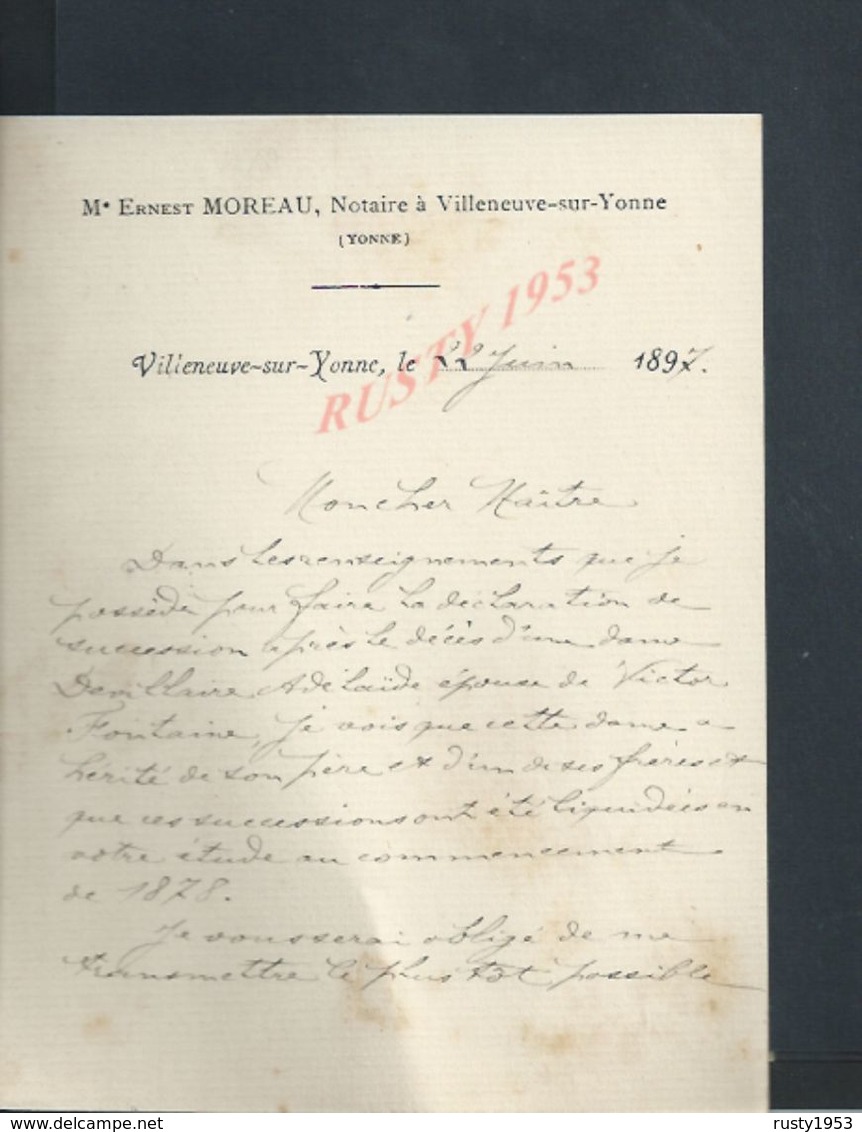 Mᵉ ERNEST MOREAU, Notaire à Villeneuve-sur-Yonne
(YONNE)
Villeneuve-sur-Yonne, le 22 Juin 1897.
RUSTY 1953
Mon cher Maître
Dans les renseignements que je
possède pour faire la déclaration de
succession après le décès d'une dame
Devillaire Adélaïde épouse de Victor
Fontaine, je vois que cette dame a
hérité de son père et d'un de ses frères et
que ces successions ont été liquidées en
votre étude au commencement
de 1878.
Je vous serai obligé de me
transmettre le plus tôt possible
delcampe.net
rusty1953